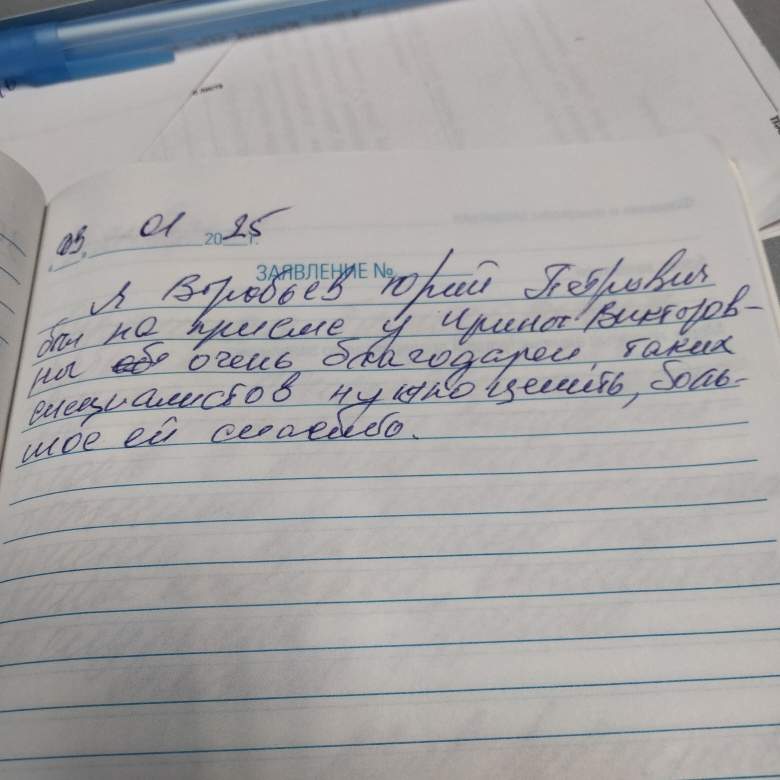 и листа
„03" 01 2025г.
ЗАЯВЛЕНИЕ №
Я Воробьев Юрий Петрович
был на приеме у Ирины Викторов-
ны очень благодарен, таких
специалистов нужно ценить, боль-
шое ей спасибо.